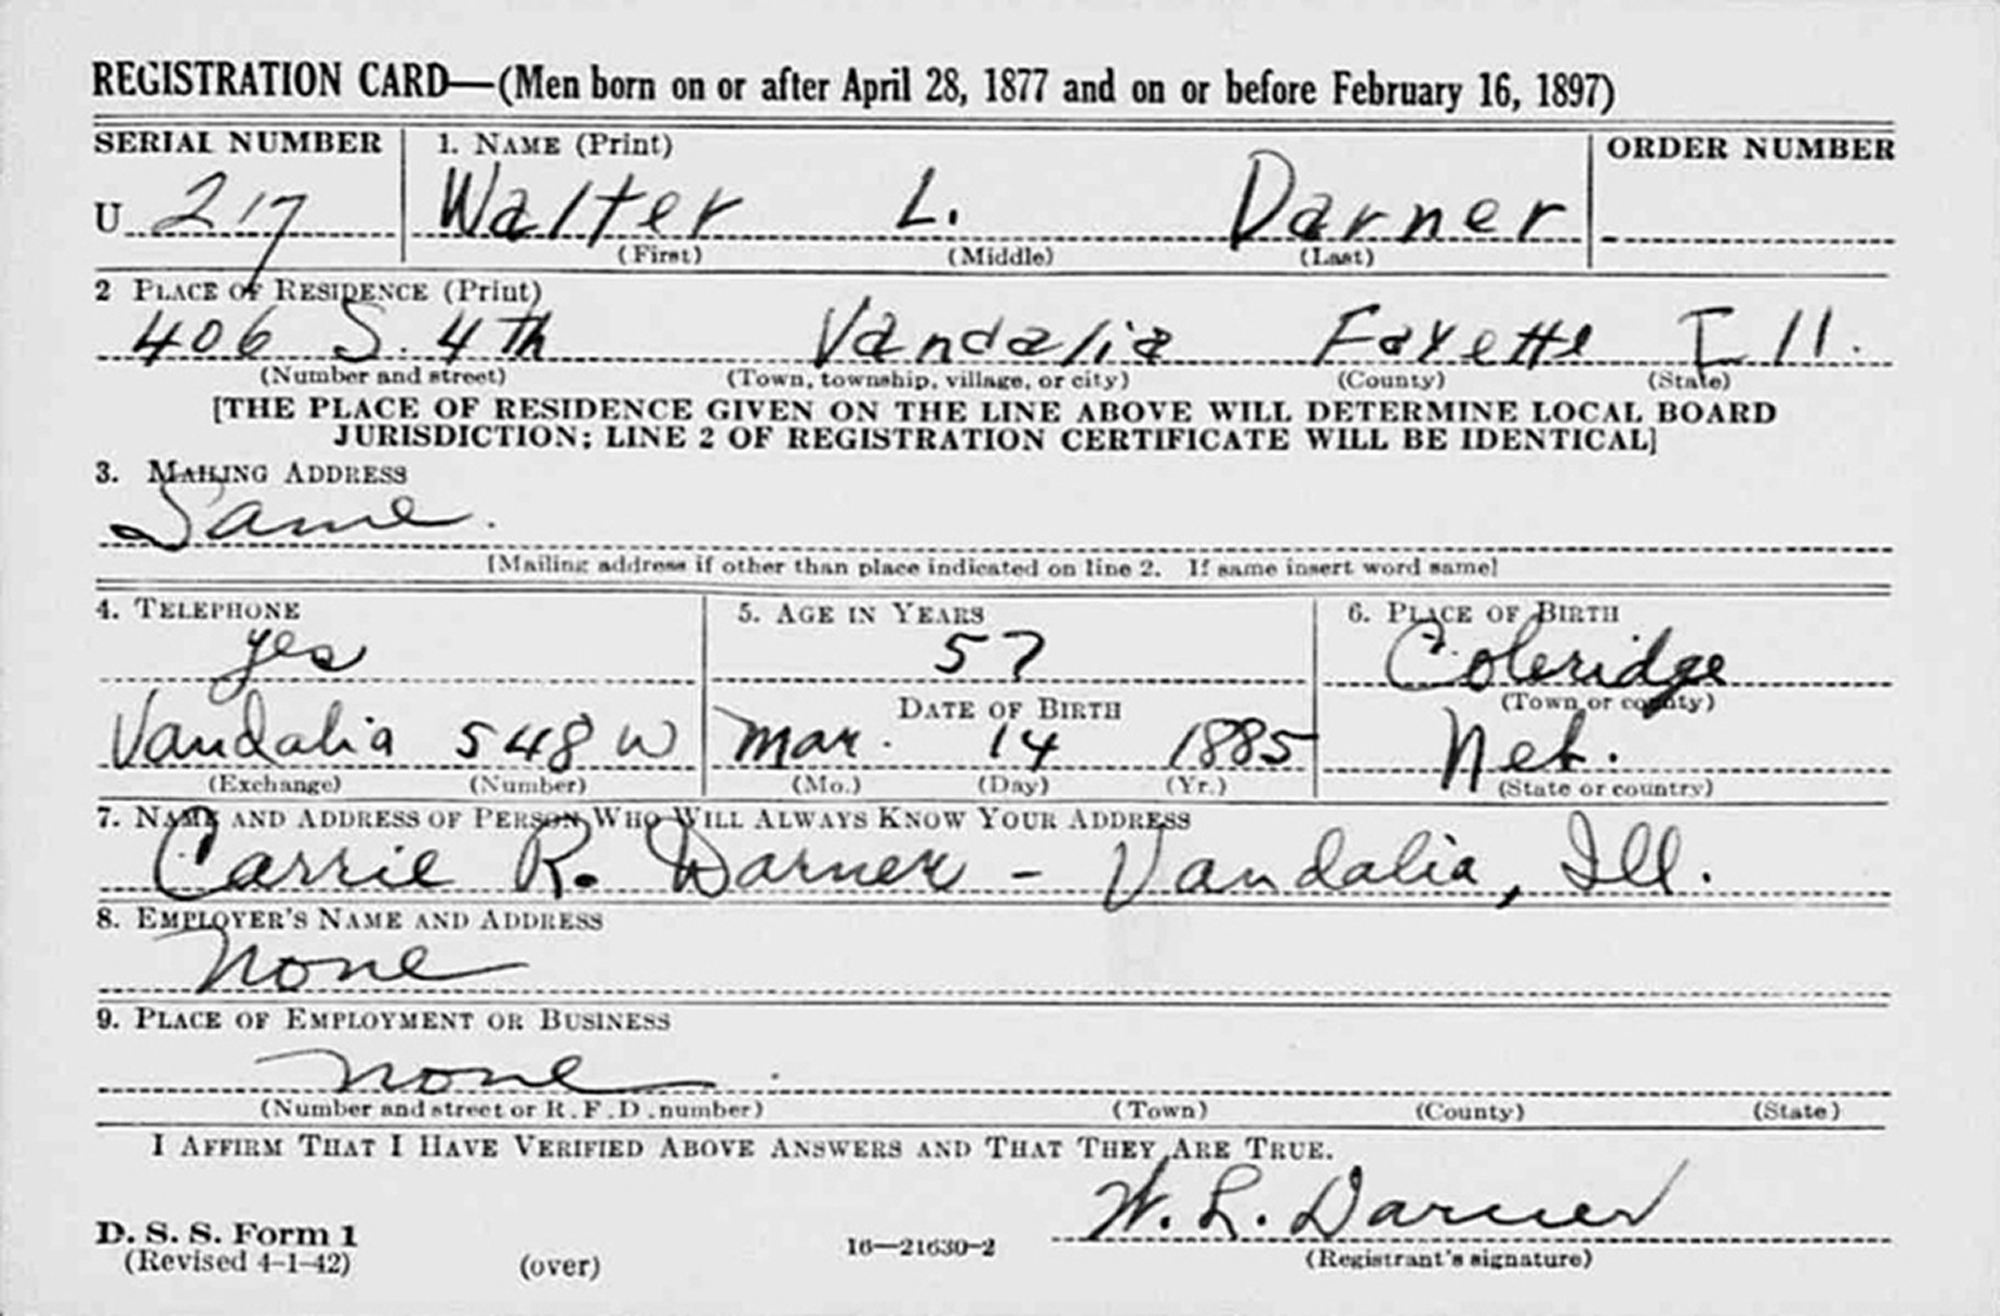 REGISTRATION CARD—(Men born on or after April 28, 1877 and on or before February 16, 1897)
SERIAL NUMBER 1. NAME (Print) ORDER NUMBER
U 217 Walter L. Darner
(First) (Middle) (Last)
2 PLACE OF RESIDENCE (Print)
406 S. 4th Vandalia Fayette Ill.
(Number and street) (Town, township, village, or city) (County) (State)
[THE PLACE OF RESIDENCE GIVEN ON THE LINE ABOVE WILL DETERMINE LOCAL BOARD
JURISDICTION; LINE 2 OF REGISTRATION CERTIFICATE WILL BE IDENTICAL]
3. MAILING ADDRESS
Same.
[Mailing address if other than place indicated on line 2. If same insert word same]
4. TELEPHONE 5. AGE IN YEARS 6. PLACE OF BIRTH
yes 57 Coleridge
DATE OF BIRTH (Town or county)
Vandalia 548 W Mar. 14 1885 Neb.
(Exchange) (Number) (Mo.) (Day) (Yr.) (State or country)
7. NAME AND ADDRESS OF PERSON WHO WILL ALWAYS KNOW YOUR ADDRESS
Carrie R. Darner - Vandalia, Ill.
8. EMPLOYER'S NAME AND ADDRESS
None
9. PLACE OF EMPLOYMENT OR BUSINESS
none
(Number and street or R. F. D. number) (Town) (County) (State)
I AFFIRM THAT I HAVE VERIFIED ABOVE ANSWERS AND THAT THEY ARE TRUE.
W. L. Darner
D. S. S. Form 1
(Revised 4-1-42) (over) 16—21630-2 (Registrant's signature)